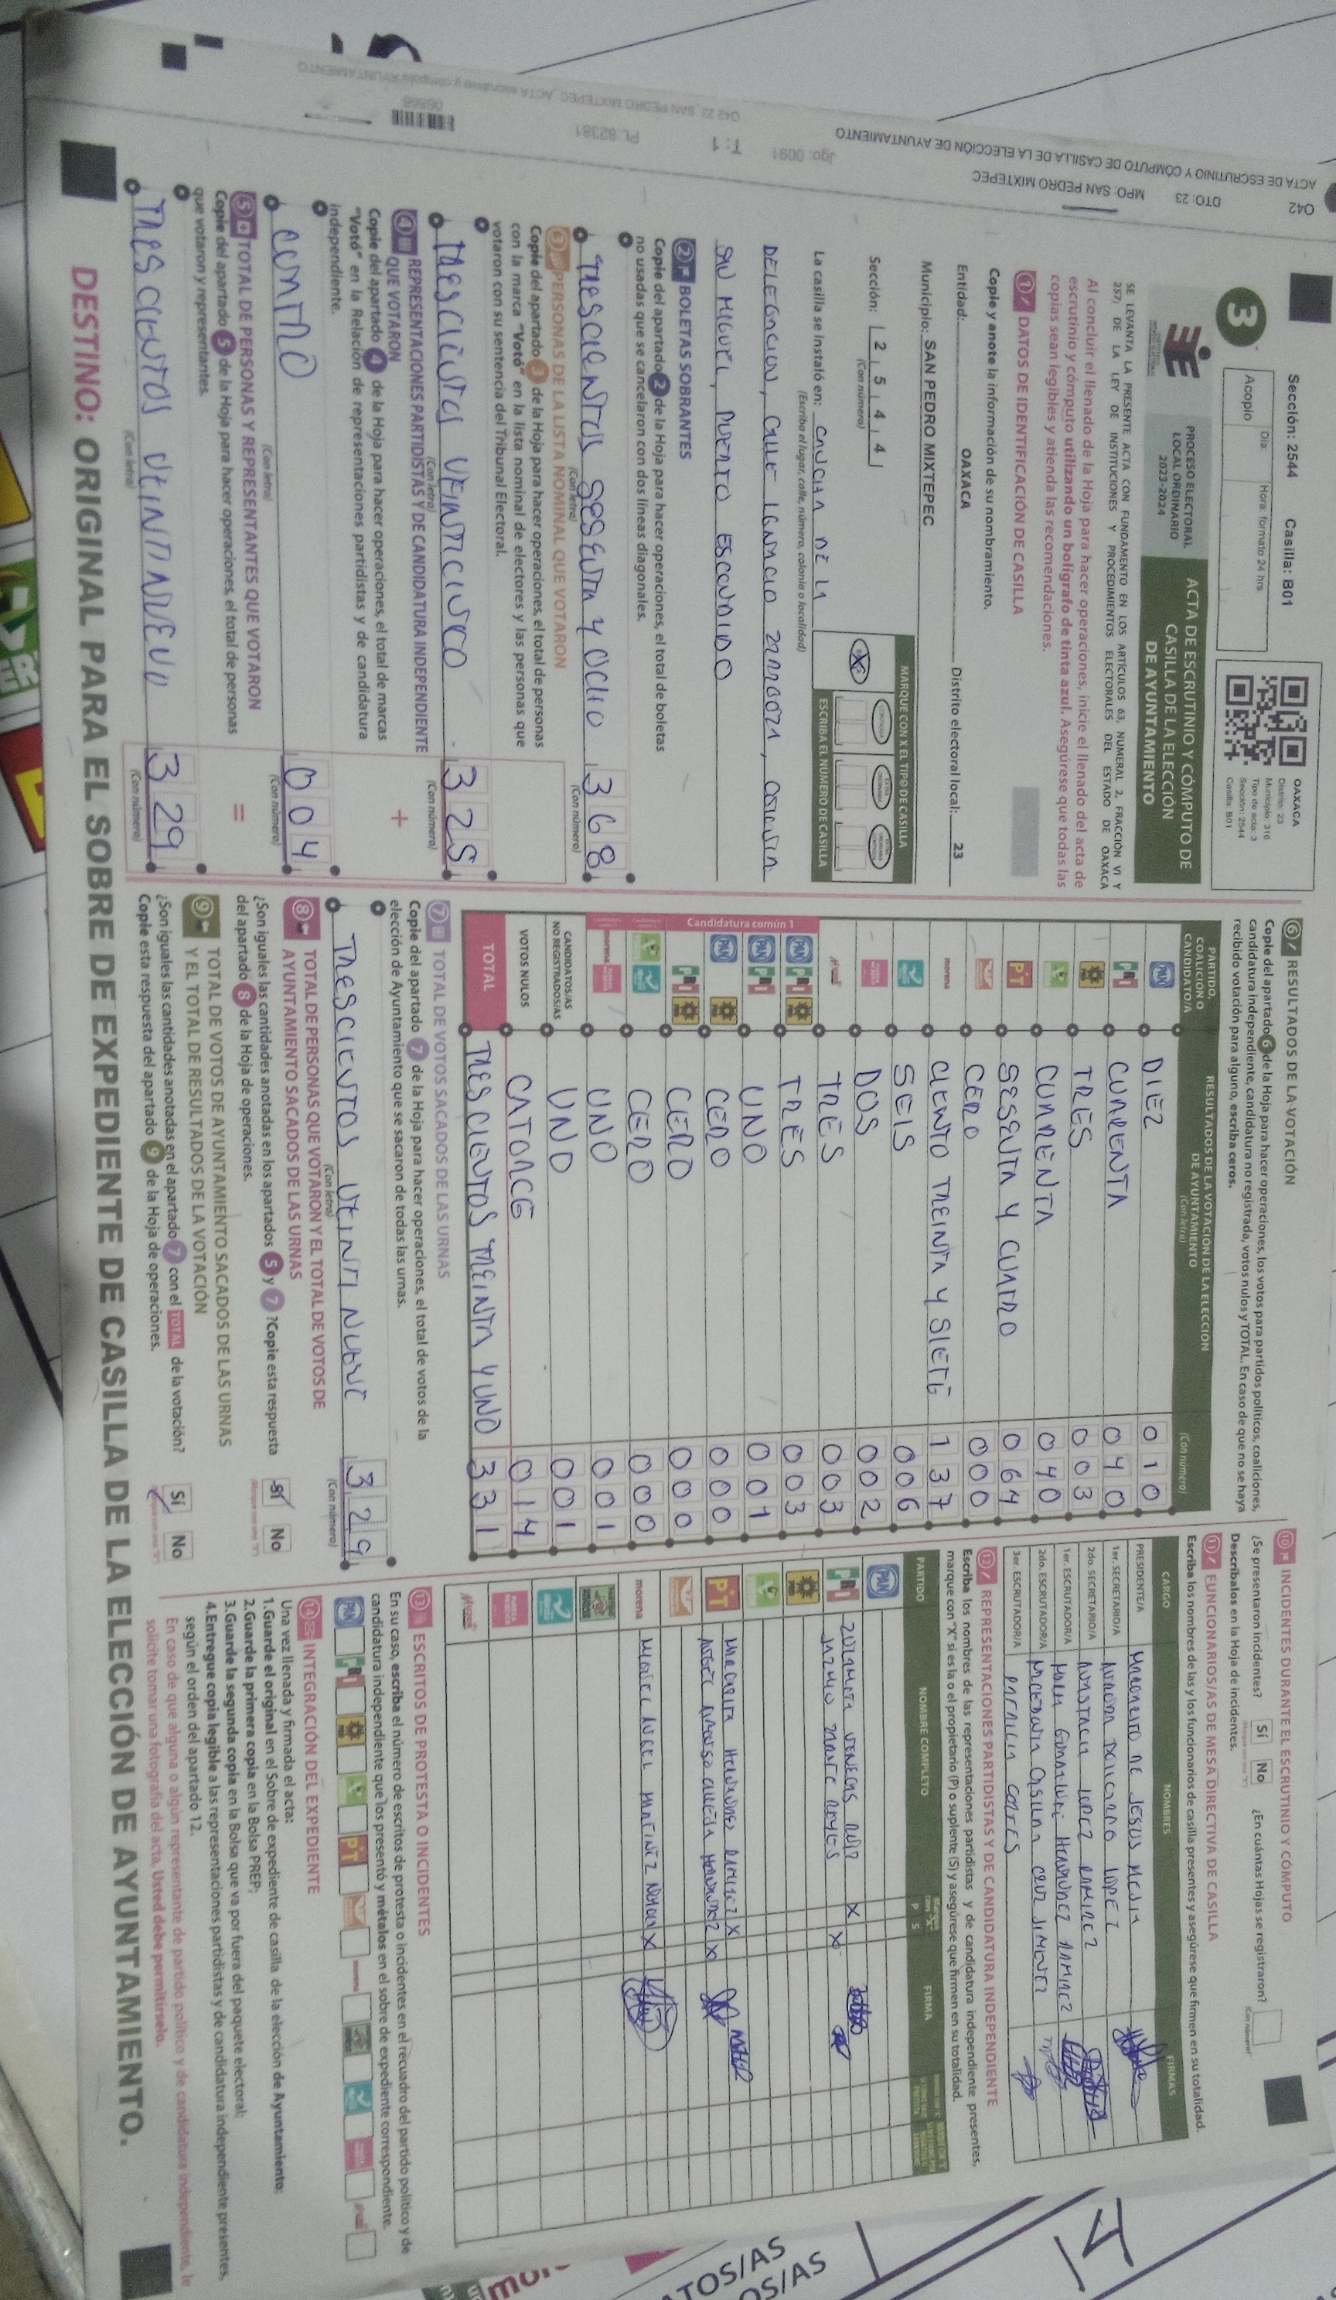 042
ACTA DE ESCRUTINIO Y CÓMPUTO DE CASILLA DE LA ELECCIÓN DE AYUNTAMIENTO
DTO: 23
MPO: SAN PEDRO MIXTEPEC
Jgo: 0091
T: 1
PL 82381
Sección: 2544 Casilla: B01
Día:
Hora: formato 24 hrs
Acopio
3
OAXACA
Distrito: 23
Municipio: 316
Tipo de acta: 3
Sección: 2544
Casilla: B01
PROCESO ELECTORAL
LOCAL ORDINARIO
2023-2024
ACTA DE ESCRUTINIO Y CÓMPUTO DE
CASILLA DE LA ELECCIÓN
DE AYUNTAMIENTO
SE LEVANTA LA PRESENTE ACTA CON FUNDAMENTO EN LOS ARTÍCULOS 63, NUMERAL 2, FRACCIÓN VI Y
257, DE LA LEY DE INSTITUCIONES Y PROCEDIMIENTOS ELECTORALES DEL ESTADO DE OAXACA
Al concluir el llenado de la Hoja para hacer operaciones, inicie el llenado del acta de
escrutinio y cómputo utilizando un bolígrafo de tinta azul. Asegúrese que todas las
copias sean legibles y atienda las recomendaciones.
1 DATOS DE IDENTIFICACIÓN DE CASILLA
Copie y anote la información de su nombramiento.
Entidad: OAXACA Distrito electoral local: 23
Municipio: SAN PEDRO MIXTEPEC
Sección: 2 5 4 4
(Con número)
MARQUE CON X EL TIPO DE CASILLA
ESCRIBA EL NÚMERO DE CASILLA
La casilla se instaló en: CANCHA DE LA
(Escriba el lugar, calle, número, colonia o localidad)
DELEGACION, CALLE IGNACIO ZARAGOZA, COLONIA
SAN MIGUEL, PUERTO ESCONDIDO
2 BOLETAS SOBRANTES
Copie del apartado 2 de la Hoja para hacer operaciones, el total de boletas
no usadas que se cancelaron con dos líneas diagonales.
TRESCIENTOS SESENTA Y OCHO 368
(Con letra) (Con número)
3 PERSONAS DE LA LISTA NOMINAL QUE VOTARON
Copie del apartado 3 de la Hoja para hacer operaciones, el total de personas
con la marca "Votó" en la lista nominal de electores y las personas que
votaron con su sentencia del Tribunal Electoral.
TRESCIENTOS VEINTICINCO 325
(Con letra) (Con número)
4 REPRESENTACIONES PARTIDISTAS Y DE CANDIDATURA INDEPENDIENTE
QUE VOTARON +
Copie del apartado 4 de la Hoja para hacer operaciones, el total de marcas
"Votó" en la Relación de representaciones partidistas y de candidatura
independiente.
CUATRO 004
(Con letra) (Con número)
5 TOTAL DE PERSONAS Y REPRESENTANTES QUE VOTARON =
Copie del apartado 5 de la Hoja para hacer operaciones, el total de personas
que votaron y representantes.
TRESCIENTOS VEINTINUEVE 329
(Con letra) (Con número)
6 RESULTADOS DE LA VOTACIÓN
Copie del apartado 6 de la Hoja para hacer operaciones, los votos para partidos políticos, coaliciones,
candidatura independiente, candidatura no registrada, votos nulos y TOTAL. En caso de que no se haya
recibido votación para alguno, escriba ceros.
PARTIDO,
COALICIÓN O
CANDIDATO/A
RESULTADOS DE LA VOTACIÓN DE LA ELECCIÓN
DE AYUNTAMIENTO
(Con letra) (Con número)
PAN DIEZ 010
PRI CUARENTA 040
TRES 003
CUARENTA 040
PT SESENTA Y CUATRO 064
CERO 000
morena CIENTO TREINTA Y SIETE 137
SEIS 006
DOS 002
TRES 003
Candidatura común 1
PAN PRI TRES 003
PAN PRI UNO 001
PAN CERO 000
PRI CERO 000
CERO 000
morena UNO 001
CANDIDATOS/AS
NO REGISTRADOS/AS UNO 001
VOTOS NULOS CATORCE 014
TOTAL TRESCIENTOS TREINTA Y UNO 331
7 TOTAL DE VOTOS SACADOS DE LAS URNAS
Copie del apartado 7 de la Hoja para hacer operaciones, el total de votos de la
elección de Ayuntamiento que se sacaron de todas las urnas.
TRESCIENTOS VEINTI NUEVE 329
(Con letra) (Con número)
8 TOTAL DE PERSONAS QUE VOTARON Y EL TOTAL DE VOTOS DE
AYUNTAMIENTO SACADOS DE LAS URNAS
¿Son iguales las cantidades anotadas en los apartados 5 y 7 ? Copie esta respuesta
del apartado 8 de la Hoja de operaciones.
Sí No
9 TOTAL DE VOTOS DE AYUNTAMIENTO SACADOS DE LAS URNAS
Y EL TOTAL DE RESULTADOS DE LA VOTACIÓN
¿Son iguales las cantidades anotadas en el apartado 7 con el TOTAL de la votación?
Copie esta respuesta del apartado 9 de la Hoja de operaciones.
Sí No
10 INCIDENTES DURANTE EL ESCRUTINIO Y CÓMPUTO
¿Se presentaron incidentes? Sí No ¿En cuántas Hojas se registraron?
Descríbalos en la Hoja de incidentes.
11 FUNCIONARIOS/AS DE MESA DIRECTIVA DE CASILLA
Escriba los nombres de las y los funcionarios de casilla presentes y asegúrese que firmen en su totalidad.
CARGO NOMBRES FIRMAS
PRESIDENTE/A DE JESUS MEJIA
1er. SECRETARIO/A AURORA POLICARPO LOPEZ
2do. SECRETARIO/A LOPEZ RAMIREZ
1er. ESCRUTADOR/A HERNANDEZ RAMIREZ
2do. ESCRUTADOR/A CRUZ JIMENEZ
3er. ESCRUTADOR/A PATRICIA CORTES
12 REPRESENTACIONES PARTIDISTAS Y DE CANDIDATURA INDEPENDIENTE
Escriba los nombres de las representaciones partidistas y de candidatura independiente presentes,
marque con "X" si es la o el propietario (P) o suplente (S) y asegúrese que firmen en su totalidad.
PARTIDO NOMBRE COMPLETO P S FIRMA
PAN
PRI VENEGAS RUIZ X
REYES X
PT MARGARITA HERNANDEZ RAMIREZ X
HERNANDEZ X
morena ANGEL MARTINEZ X
13 ESCRITOS DE PROTESTA O INCIDENTES
En su caso, escriba el número de escritos de protesta o incidentes en el recuadro del partido político y de
candidatura independiente que los presentó y métalos en el sobre de expediente correspondiente.
PAN PRI PT
14 INTEGRACIÓN DEL EXPEDIENTE
Una vez llenada y firmada el acta:
1.Guarde el original en el Sobre de expediente de casilla de la elección de Ayuntamiento;
2.Guarde la primera copia en la Bolsa PREP;
3.Guarde la segunda copia en la Bolsa que va por fuera del paquete electoral;
4.Entregue copia legible a las representaciones partidistas y de candidatura independiente presentes,
según el orden del apartado 12.
En caso de que alguna o algún representante de partido político y de candidatura independiente, le
solicite tomar una fotografía del acta, Usted debe permitírselo.
DESTINO: ORIGINAL PARA EL SOBRE DE EXPEDIENTE DE CASILLA DE LA ELECCIÓN DE AYUNTAMIENTO.
TOS/AS
OS/AS